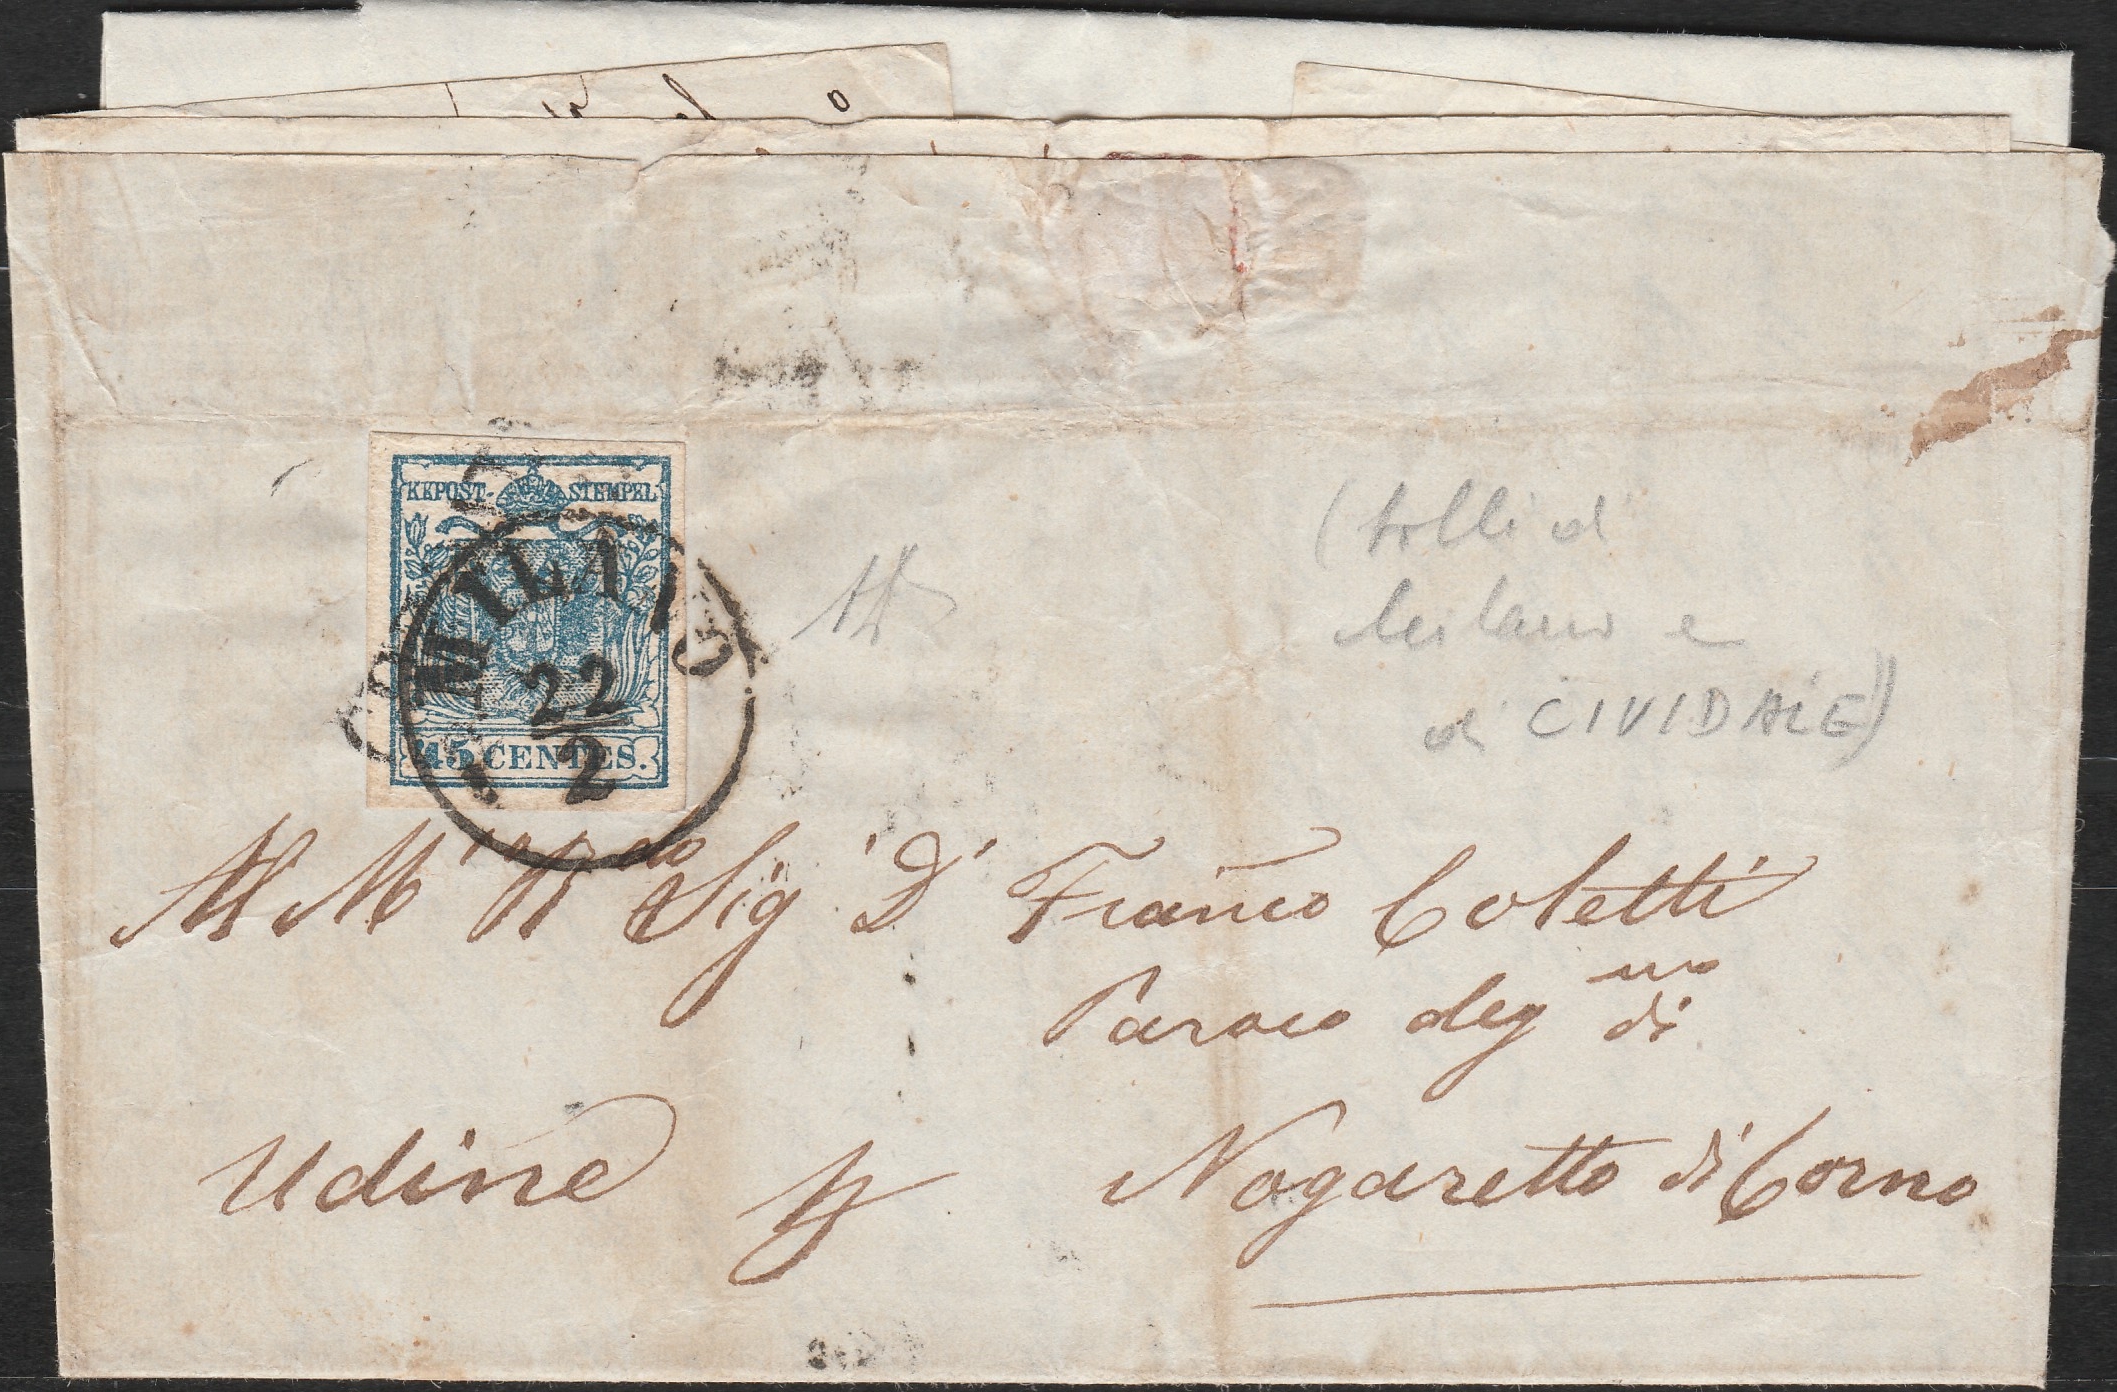 KKPOST-STEMPEL
MILANO
22
2
45 CENTES.
(bolli di
Milano e
di CIVIDALE)
Al M. R.do Sig. D. Fran̄co Coletti
Paroco deg.mo di
Udine p Nogaretto di Corno